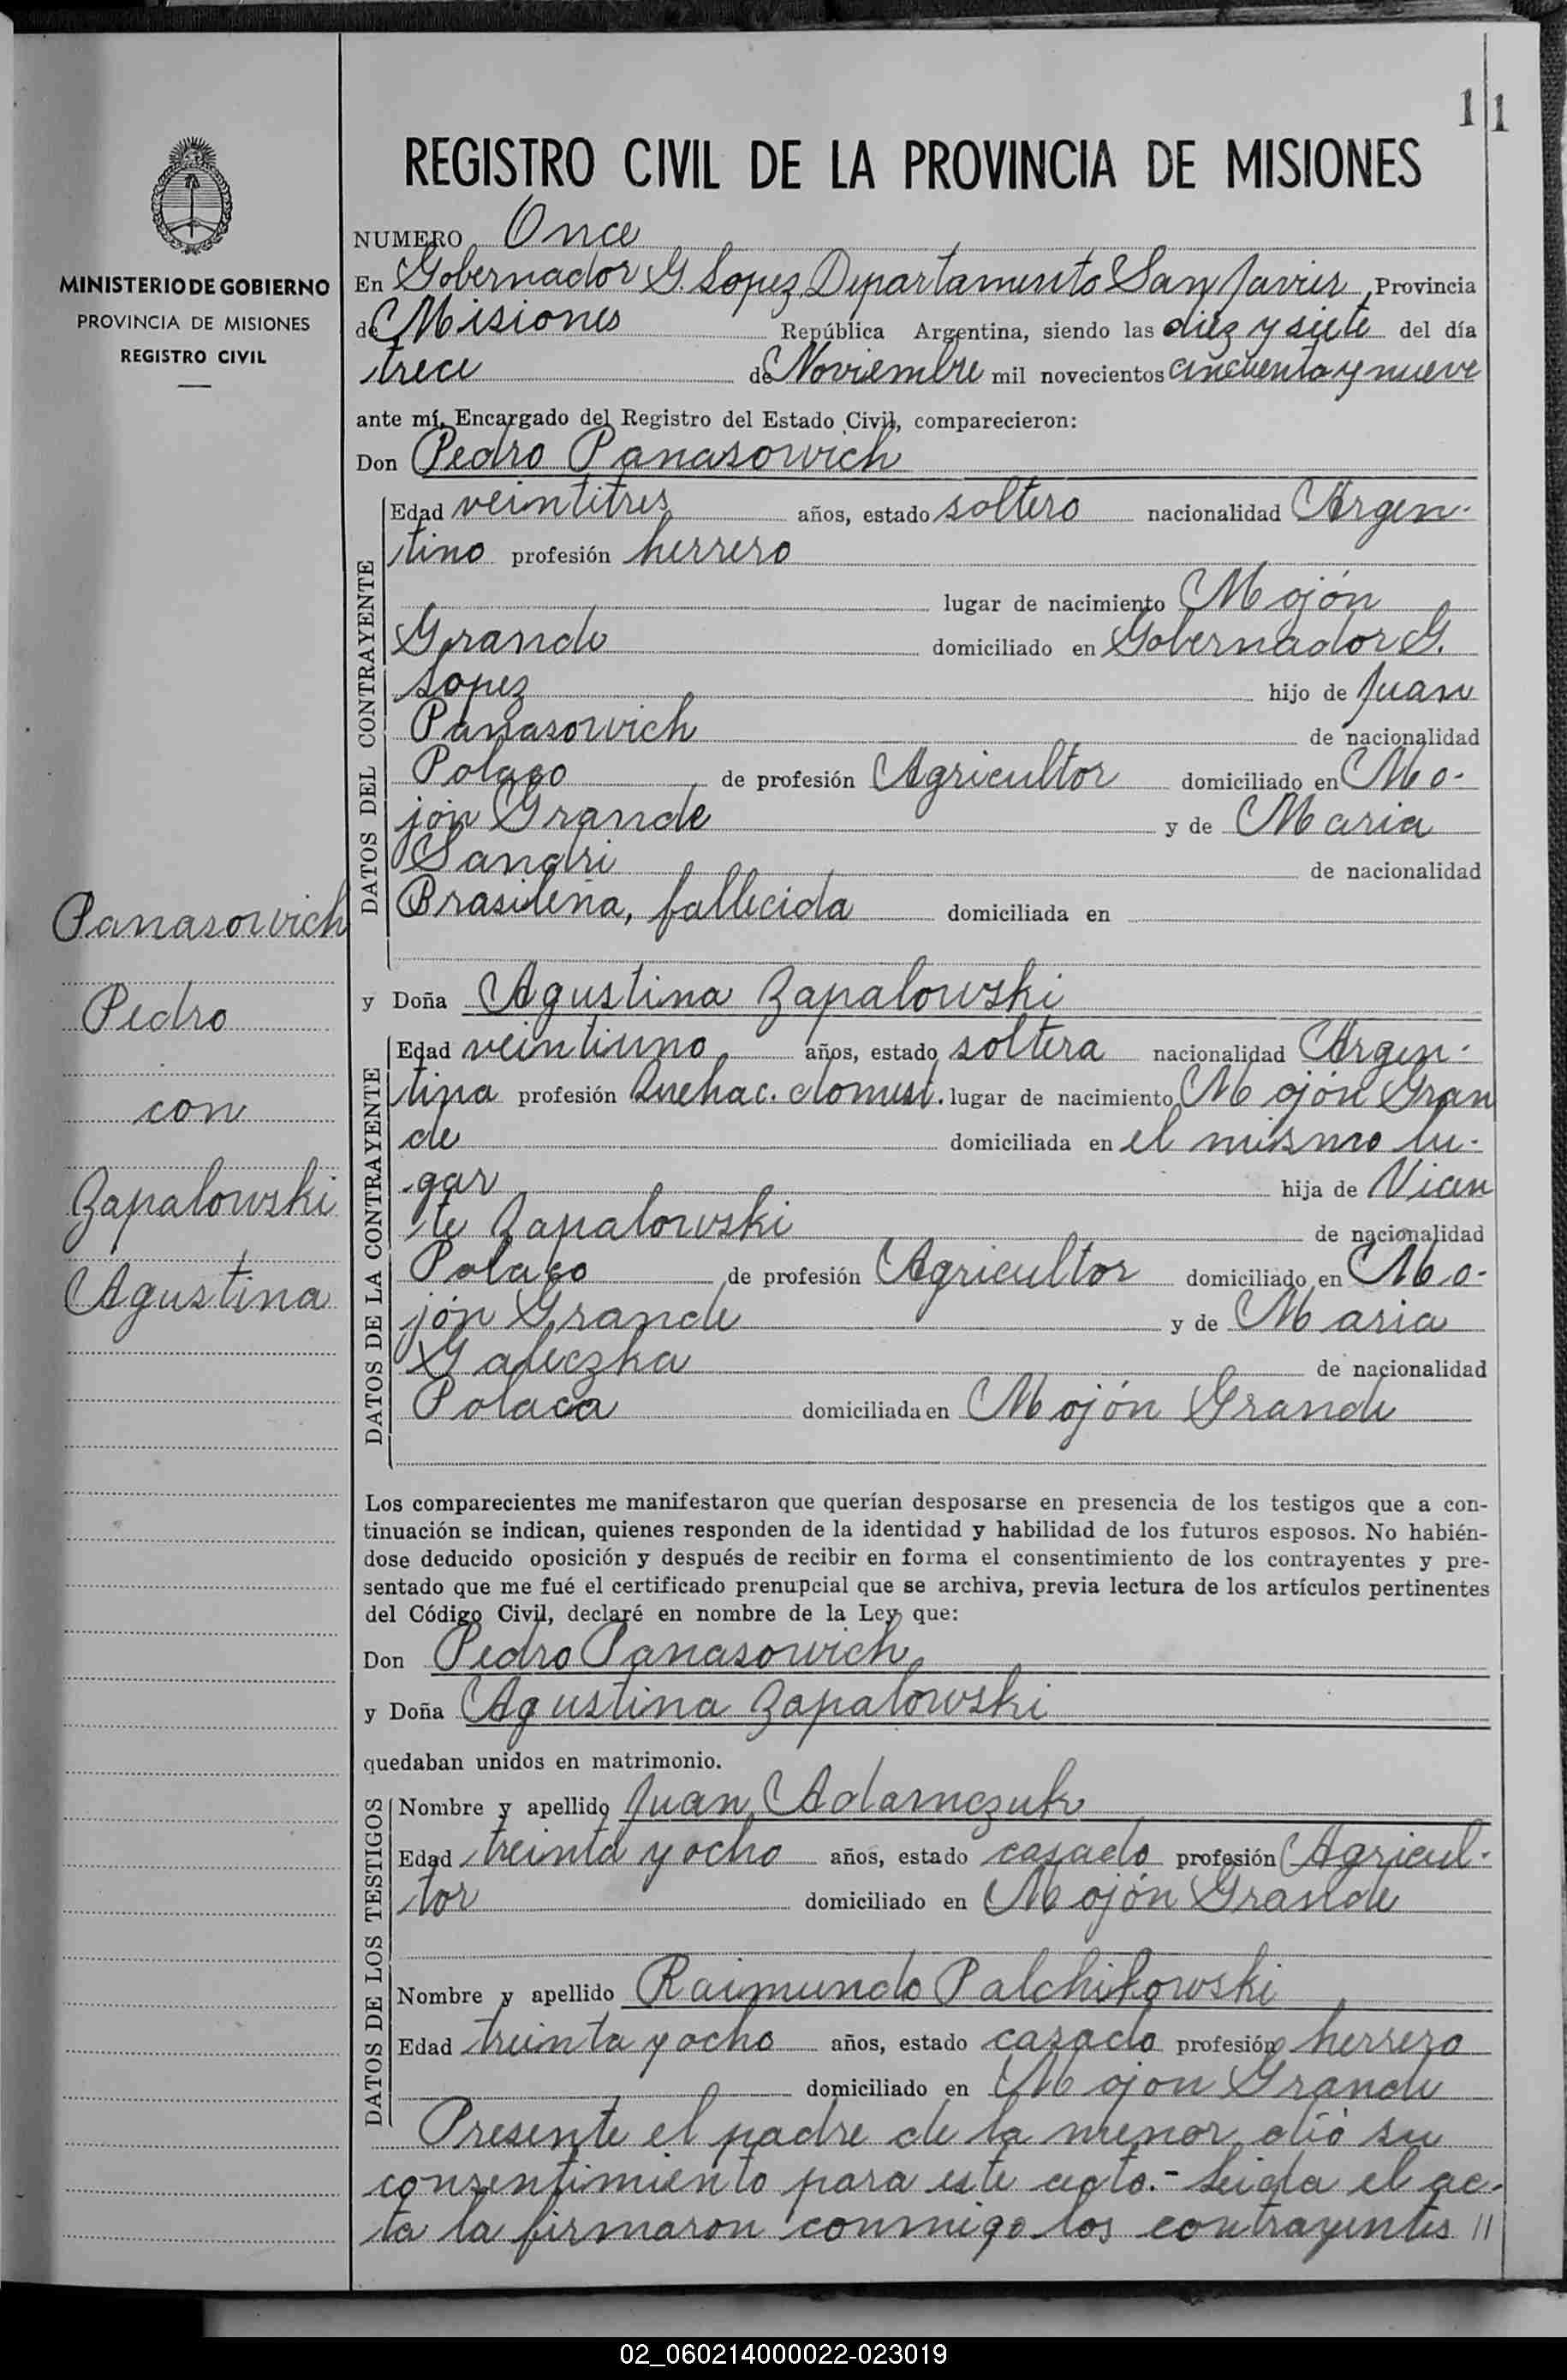 11
REGISTRO CIVIL DE LA PROVINCIA DE MISIONES
MINISTERIO DE GOBIERNO
PROVINCIA DE MISIONES
REGISTRO CIVIL
NUMERO Once
En Gobernador G. Lopez, Departamento San Javier, Provincia
de Misiones República Argentina, siendo las diez y siete del día
trece de Noviembre mil novecientos cincuenta y nueve
ante mí, Encargado del Registro del Estado Civil, comparecieron:
Don Pedro Panasowich
DATOS DEL CONTRAYENTE
Edad veintitres años, estado soltero nacionalidad Argen-
tino profesión herrero
lugar de nacimiento Mojón
Grande domiciliado en Gobernador G.
Lopez hijo de Juan
Panasowich de nacionalidad
Polaco de profesión Agricultor domiciliado en Mo-
jón Grande y de Maria
Sandri de nacionalidad
Brasileña, fallecida domiciliada en
Panasowich
Pedro
con
Zapalowski
Agustina
y Doña Agustina Zapalowski
DATOS DE LA CONTRAYENTE
Edad veintiuno años, estado soltera nacionalidad Argen-
tina profesión Quehac. domest. lugar de nacimiento Mojón Gran
de domiciliada en el mismo lu-
gar hija de Vicen
te Zapalowski de nacionalidad
Polaco de profesión Agricultor domiciliado en Mo-
jón Grande y de Maria
Galeczka de nacionalidad
Polaca domiciliada en Mojón Grande
Los comparecientes me manifestaron que querían desposarse en presencia de los testigos que a con-
tinuación se indican, quienes responden de la identidad y habilidad de los futuros esposos. No habién-
dose deducido oposición y después de recibir en forma el consentimiento de los contrayentes y pre-
sentado que me fué el certificado prenupcial que se archiva, previa lectura de los artículos pertinentes
del Código Civil, declaré en nombre de la Ley que:
Don Pedro Panasowich
y Doña Agustina Zapalowski
quedaban unidos en matrimonio.
DATOS DE LOS TESTIGOS
Nombre y apellido Juan Adamczuk
Edad treinta y ocho años, estado casado profesión Agricul-
tor domiciliado en Mojón Grande
Nombre y apellido Raimundo Palchikowski
Edad treinta y ocho años, estado casado profesión herrero
domiciliado en Mojon Grande
Presente el padre de la menor dió su
consentimiento para este acto.- Leida el ac-
ta la firmaron conmigo los contrayentes //
02_060214000022-023019